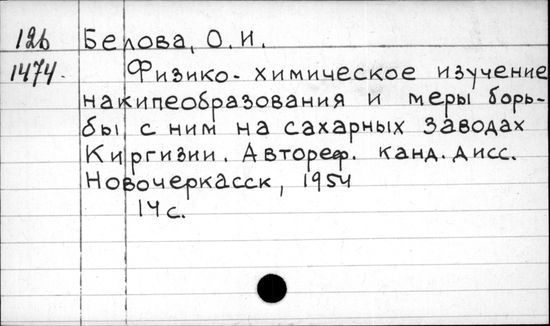 126 Белова, О. И.
1474. Физико-химическое изучение
накипеобразования и меры борь-
бы с ним на сахарных заводах
Киргизии. Автореф. канд. дисс.
Новочеркасск, 1954
14 с.